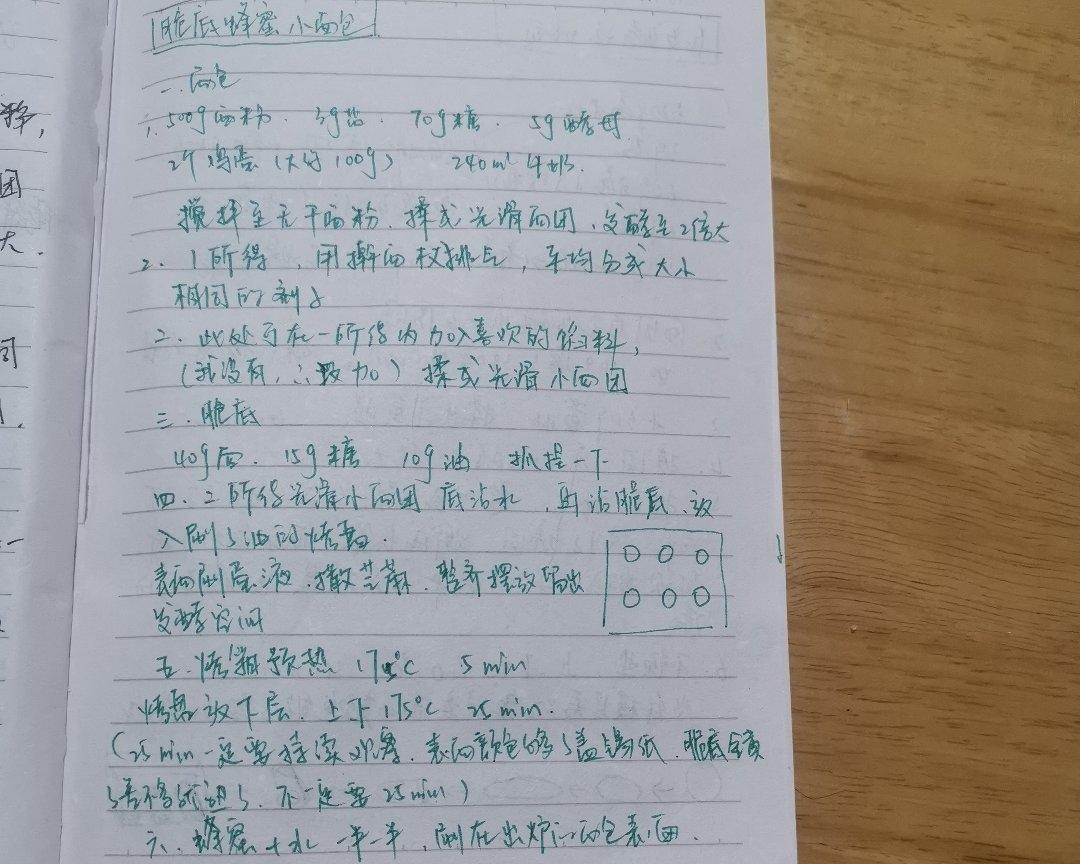 脆底蜂蜜小面包
一.面包
1. 500g面粉. 3g盐. 70g糖. 5g酵母
2个鸡蛋(大约100g) 240ml牛奶.
搅拌至无干面粉. 揉成光滑面团. 发酵至2倍大
2. 1所得, 用擀面杖排气, 平均分成大小
相同的剂子
二. 此处可在一所得内加入喜欢的馅料,
(我没有, ∴没加) 揉成光滑小面团
三. 脆底
40g面. 15g糖 10g油 抓捏一下
四. 二所得光滑小面团 底沾水, 再沾脆底. 放
入刷了油的烤盘.
表面刷蛋液. 撒芝麻. 整齐摆放留出
发酵空间
五. 烤箱预热 175°C 5min
烤盘放下层. 上下175°C 25min.
(25min一定要持续观察. 表面颜色够了盖锡纸. 脆底
不一定要25min)
六. 蜂蜜+水 一半一半, 刷在出炉的面包表面.
团
大.